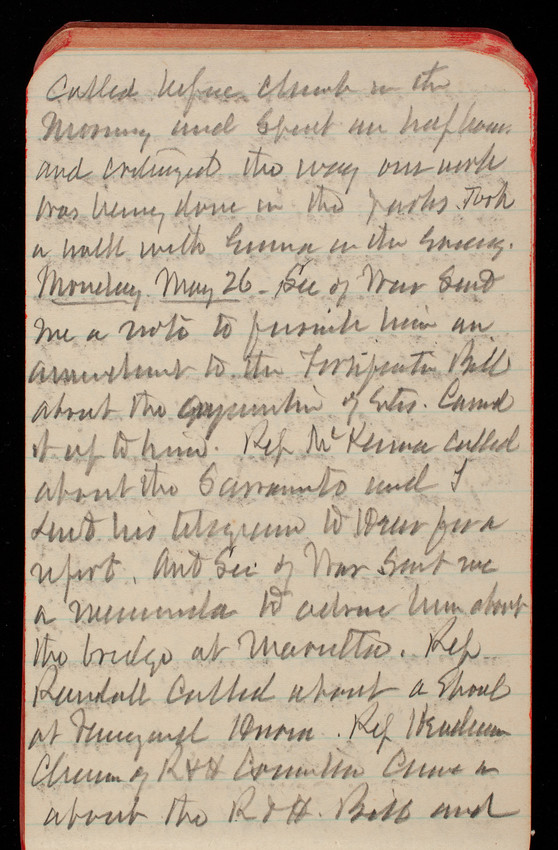 Called before church in the
Morning and Spent an half hour
and criticized the way our work
was being done in the parks. Took
a walk with Emma in the Evening.
Monday May 26 - Sec of War Sent
me a note to furnish him an
amendment to the Fortification Bill
about the of Ests. Carried
it up to him. Rep McKenna called
about the Sacramento and I
Sent his telegram to Heuer for a
report. Ast Sec of War Sent me
a memoranda to advise him about
the bridge at Marietta. Rep
Randall called about a Shoal
at. Rep Henderson
Chairm of R & H Committee Came in
about the R & H. Bill and